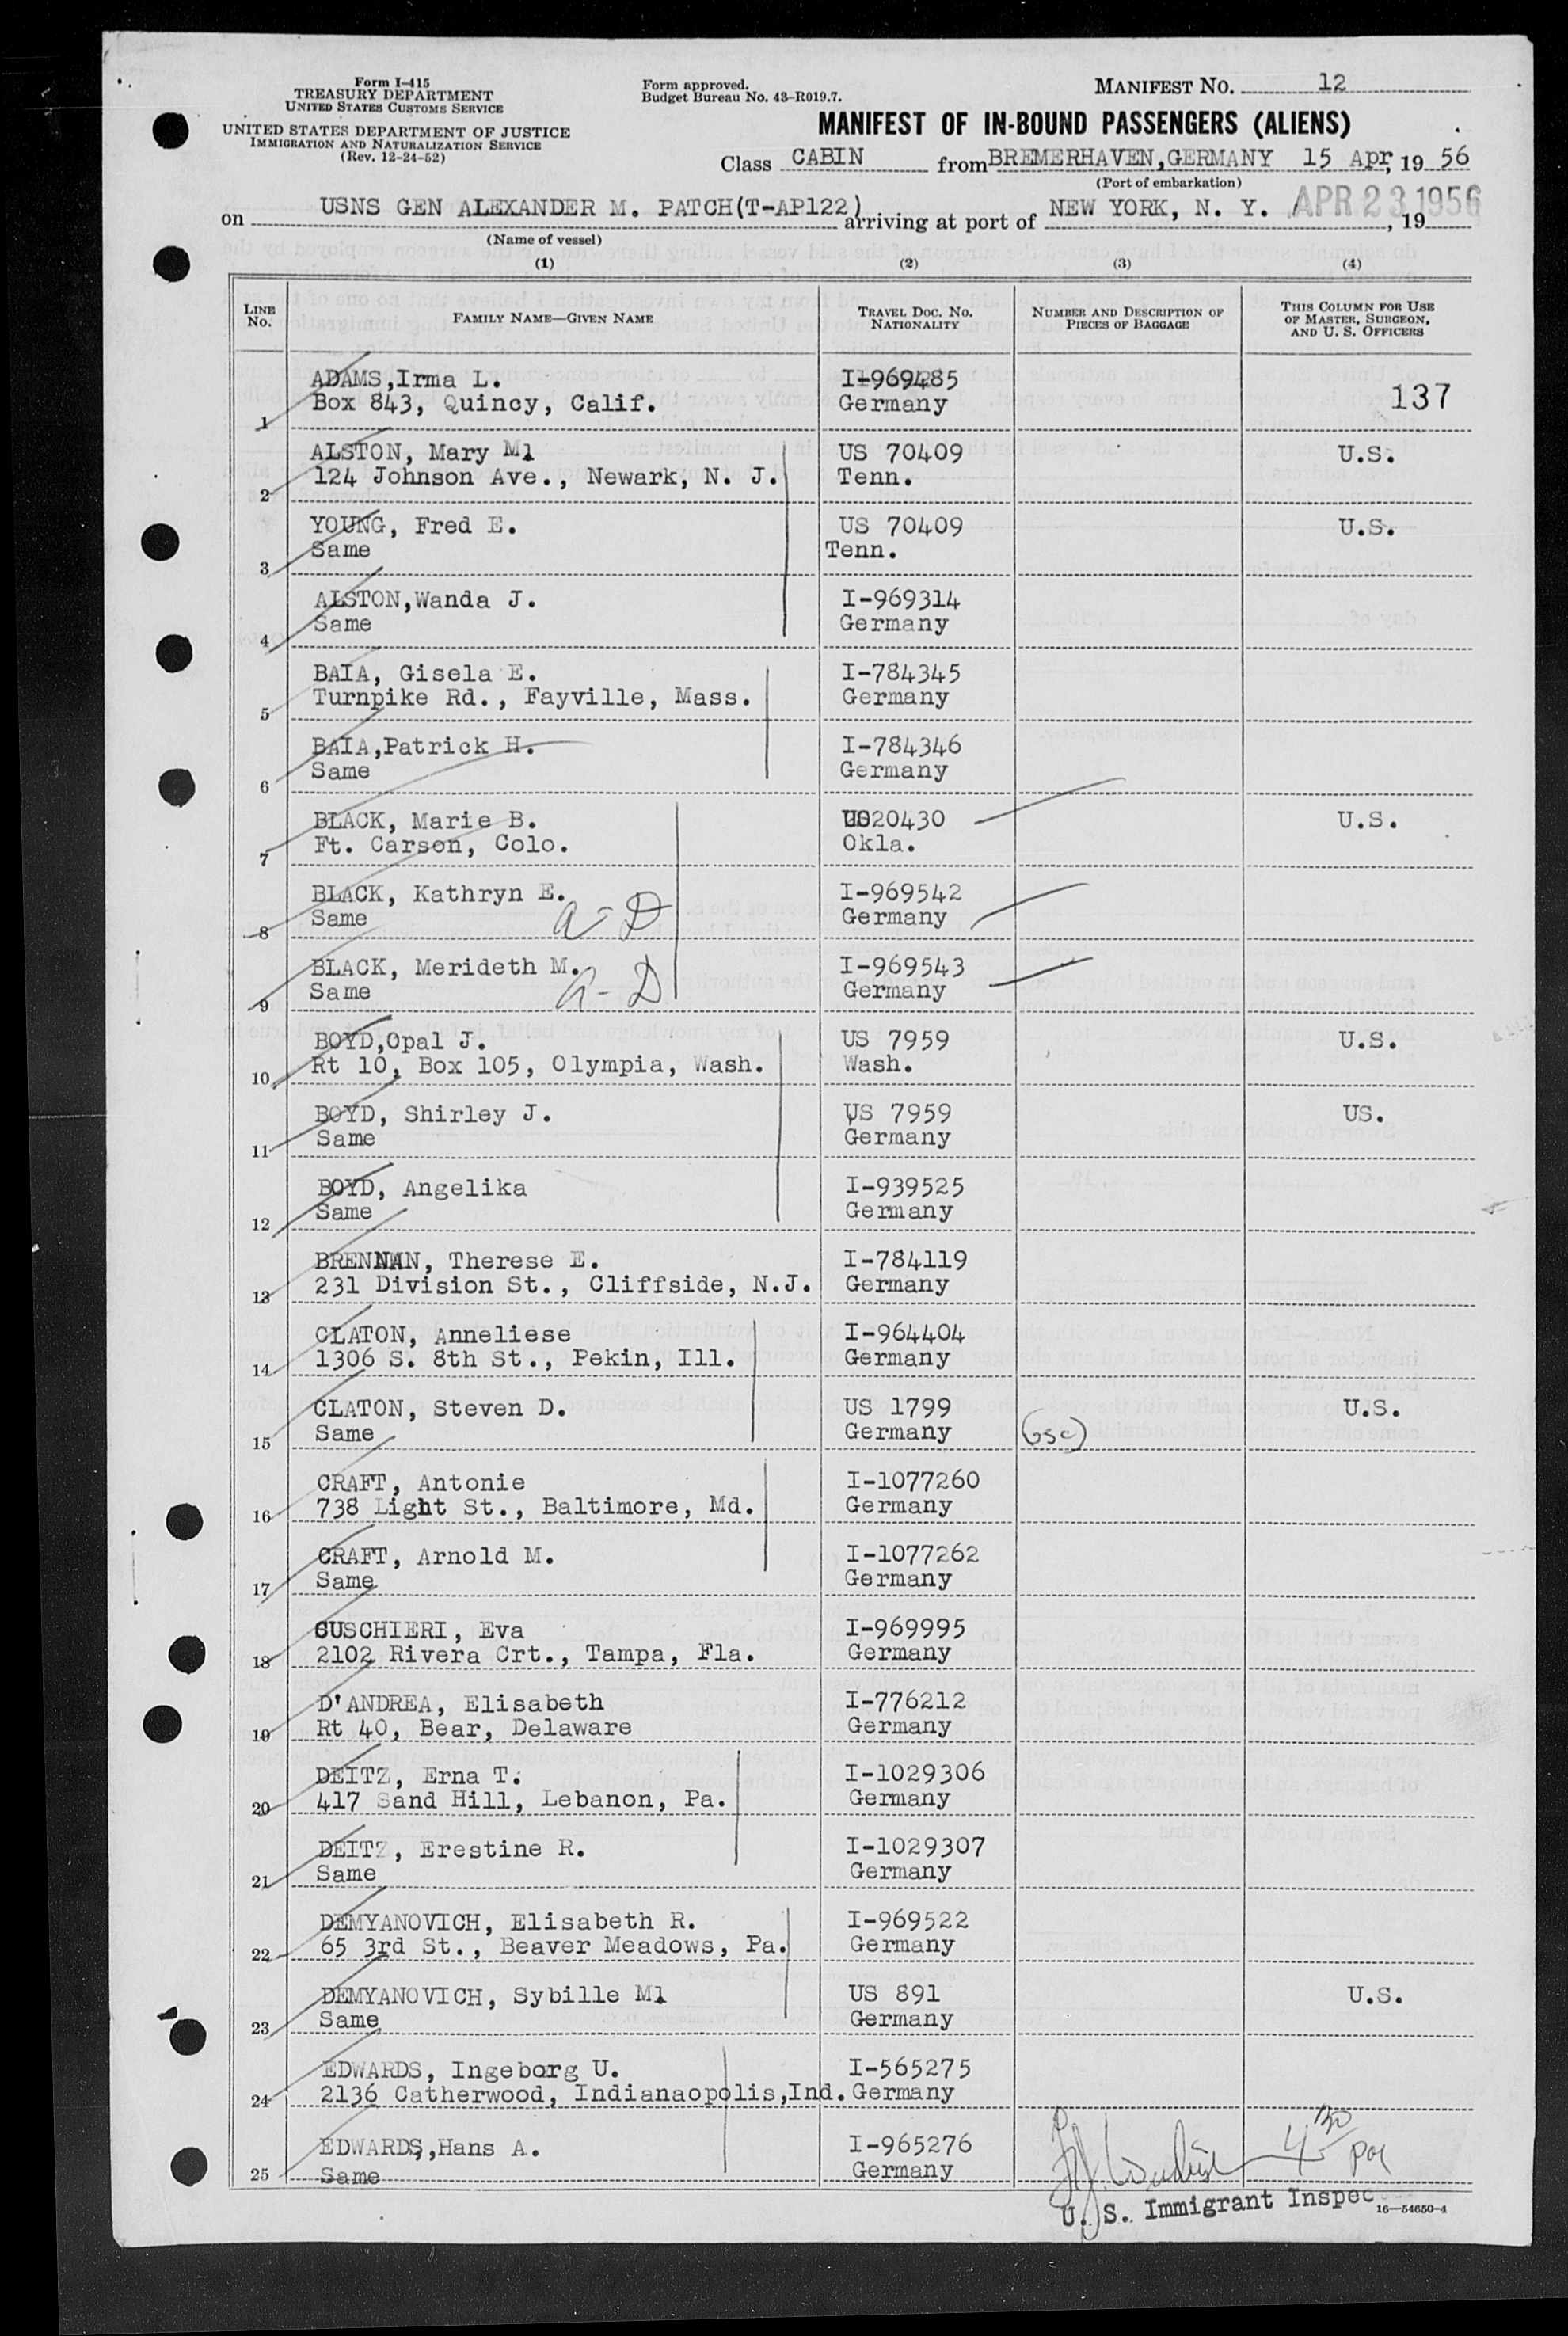 Form I-415
TREASURY DEPARTMENT
UNITED STATES CUSTOMS SERVICE
UNITED STATES DEPARTMENT OF JUSTICE
IMMIGRATION AND NATURALIZATION SERVICE
(Rev. 12-24-52)
Form approved.
Budget Bureau No. 43-R019.7.
MANIFEST NO. 12
MANIFEST OF IN-BOUND PASSENGERS (ALIENS)
Class CABIN from BREMERHAVEN,GERMANY 15 Apr, 19 56
(Port of embarkation)
on USNS GEN ALEXANDER M. PATCH(T-AP122) arriving at port of NEW YORK, N. Y. APR 23 1956, 19
(Name of vessel)
(1) (2) (3) (4)
LINE NO. FAMILY NAME—GIVEN NAME TRAVEL DOC. NO. NATIONALITY NUMBER AND DESCRIPTION OF PIECES OF BAGGAGE THIS COLUMN FOR USE OF MASTER, SURGEON, AND U. S. OFFICERS
ADAMS,Irma L. I-969485
1 Box 843, Quincy, Calif. Germany 137
ALSTON, Mary Ml US 70409 U.S.
2 124 Johnson Ave., Newark, N. J. Tenn.
YOUNG, Fred E. US 70409 U.S.
3 Same Tenn.
ALSTON,Wanda J. I-969314
4 Same Germany
BAIA, Gisela E. I-784345
5 Turnpike Rd., Fayville, Mass. Germany
BAIA,Patrick H. I-784346
6 Same Germany
BLACK, Marie B. 20430 U.S.
7 Ft. Carson, Colo. Okla.
BLACK, Kathryn E. I-969542
8 Same a-D Germany
BLACK, Merideth M. I-969543
9 Same a-D Germany
BOYD,Opal J. US 7959 U.S.
10 Rt 10, Box 105, Olympia, Wash. Wash.
BOYD, Shirley J. US 7959 US.
11 Same Germany
BOYD, Angelika I-939525
12 Same Germany
BRENNAN, Therese E. I-784119
13 231 Division St., Cliffside, N.J. Germany
CLATON, Anneliese I-964404
14 1306 S. 8th St., Pekin, Ill. Germany
CLATON, Steven D. US 1799 U.S.
15 Same Germany
CRAFT, Antonie I-1077260
16 738 Light St., Baltimore, Md. Germany
CRAFT, Arnold M. I-1077262
17 Same Germany
CUSCHIERI, Eva I-969995
18 2102 Rivera Crt., Tampa, Fla. Germany
D'ANDREA, Elisabeth I-776212
19 Rt 40, Bear, Delaware Germany
DEITZ, Erna T. I-1029306
20 417 Sand Hill, Lebanon, Pa. Germany
DEITZ, Erestine R. I-1029307
21 Same Germany
DEMYANOVICH, Elisabeth R. I-969522
22 65 3rd St., Beaver Meadows, Pa. Germany
DEMYANOVICH, Sybille Ml US 891 U.S.
23 Same Germany
EDWARDS, Ingeborg U. I-565275
24 2136 Catherwood, Indianaopolis,Ind. Germany
EDWARDS,Hans A. I-965276
25 Same Germany
U. S. Immigrant Inspec
16—54650-4